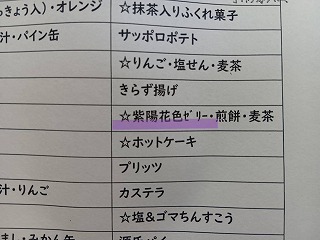 きょう入)・オレンジ
☆抹茶入りふくれ菓子
汁・パイン缶
サッポロポテト
☆りんご・塩せん・麦茶
きらず揚げ
☆紫陽花色ｾﾞﾘｰ・煎餅・麦茶
☆ホットケーキ
プリッツ
汁・りんご
カステラ
☆塩&ゴマちんすこう
まし・みかん缶
源氏パイ